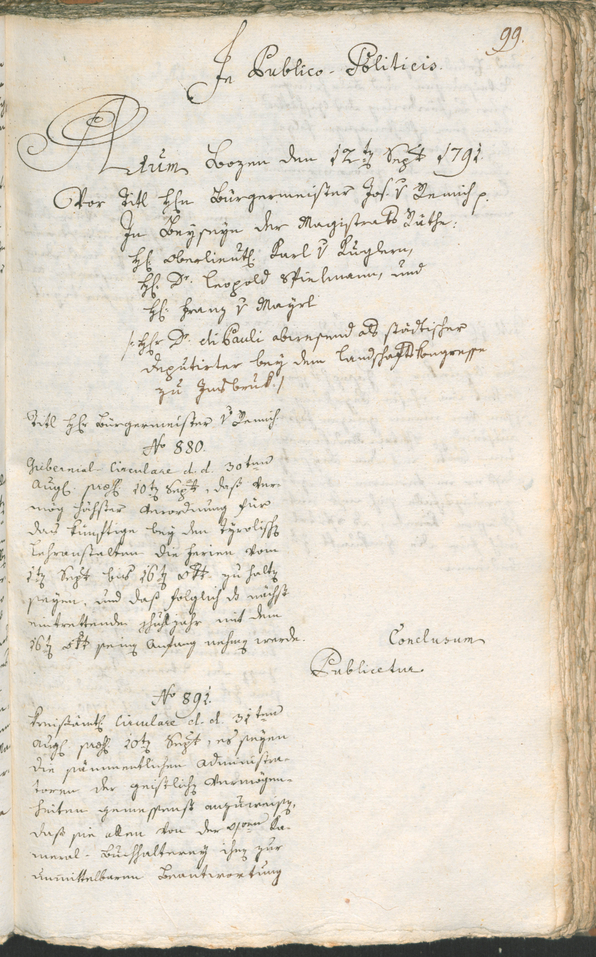 99.
In Publico-Politicis.
Actum Bozen den 12ten Sept 1791.
Vor Titl Hhn Bürgermeister Jos. v Remich p.
In Beyseyn der Magistrats Räthe:
Hh Oberlieut. Karl v Kuglern,
Hh Dr. Leopold Spielmann, und
Hh Franz v Mayrl
/: Hhr Dr. di Pauli abwesend als städtischer
deputirter bey dem Landschaftskongresse
zu Insbruk :/
Titl Hhr Bürgermeister v Remich
No 880.
Gubernial Circulare d. d. 30ten
Aug. 10ten Sept, daß ver-
mög höchster Verordnung für
das künftige bey den tyrolisch
Lehranstalten die Ferien vom
1ten Sept bis 16ten Okt. zu halten
seyen, und daß folglich das nächst
eintrettende Schuljahr mit dem
16ten Okt seinen Anfang nehmen werde.
Conclusum
Publicetur
No 891.
Kreisamts Circulare d. d. 31ten
Aug. 10ten Sept, es seyen
die sämmentlichen Administra-
toren der geistlichen Vermögen-
heiten gemessenst anzuweisen,
daß sie allen von der Ka-
meral-Buchhalterey ihnen zur
unmittelbaren Beantwortung